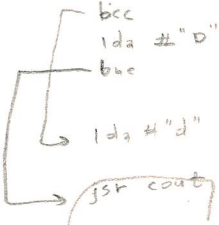 bcc
lda #"D"
bne
lda #"d"
jsr cout